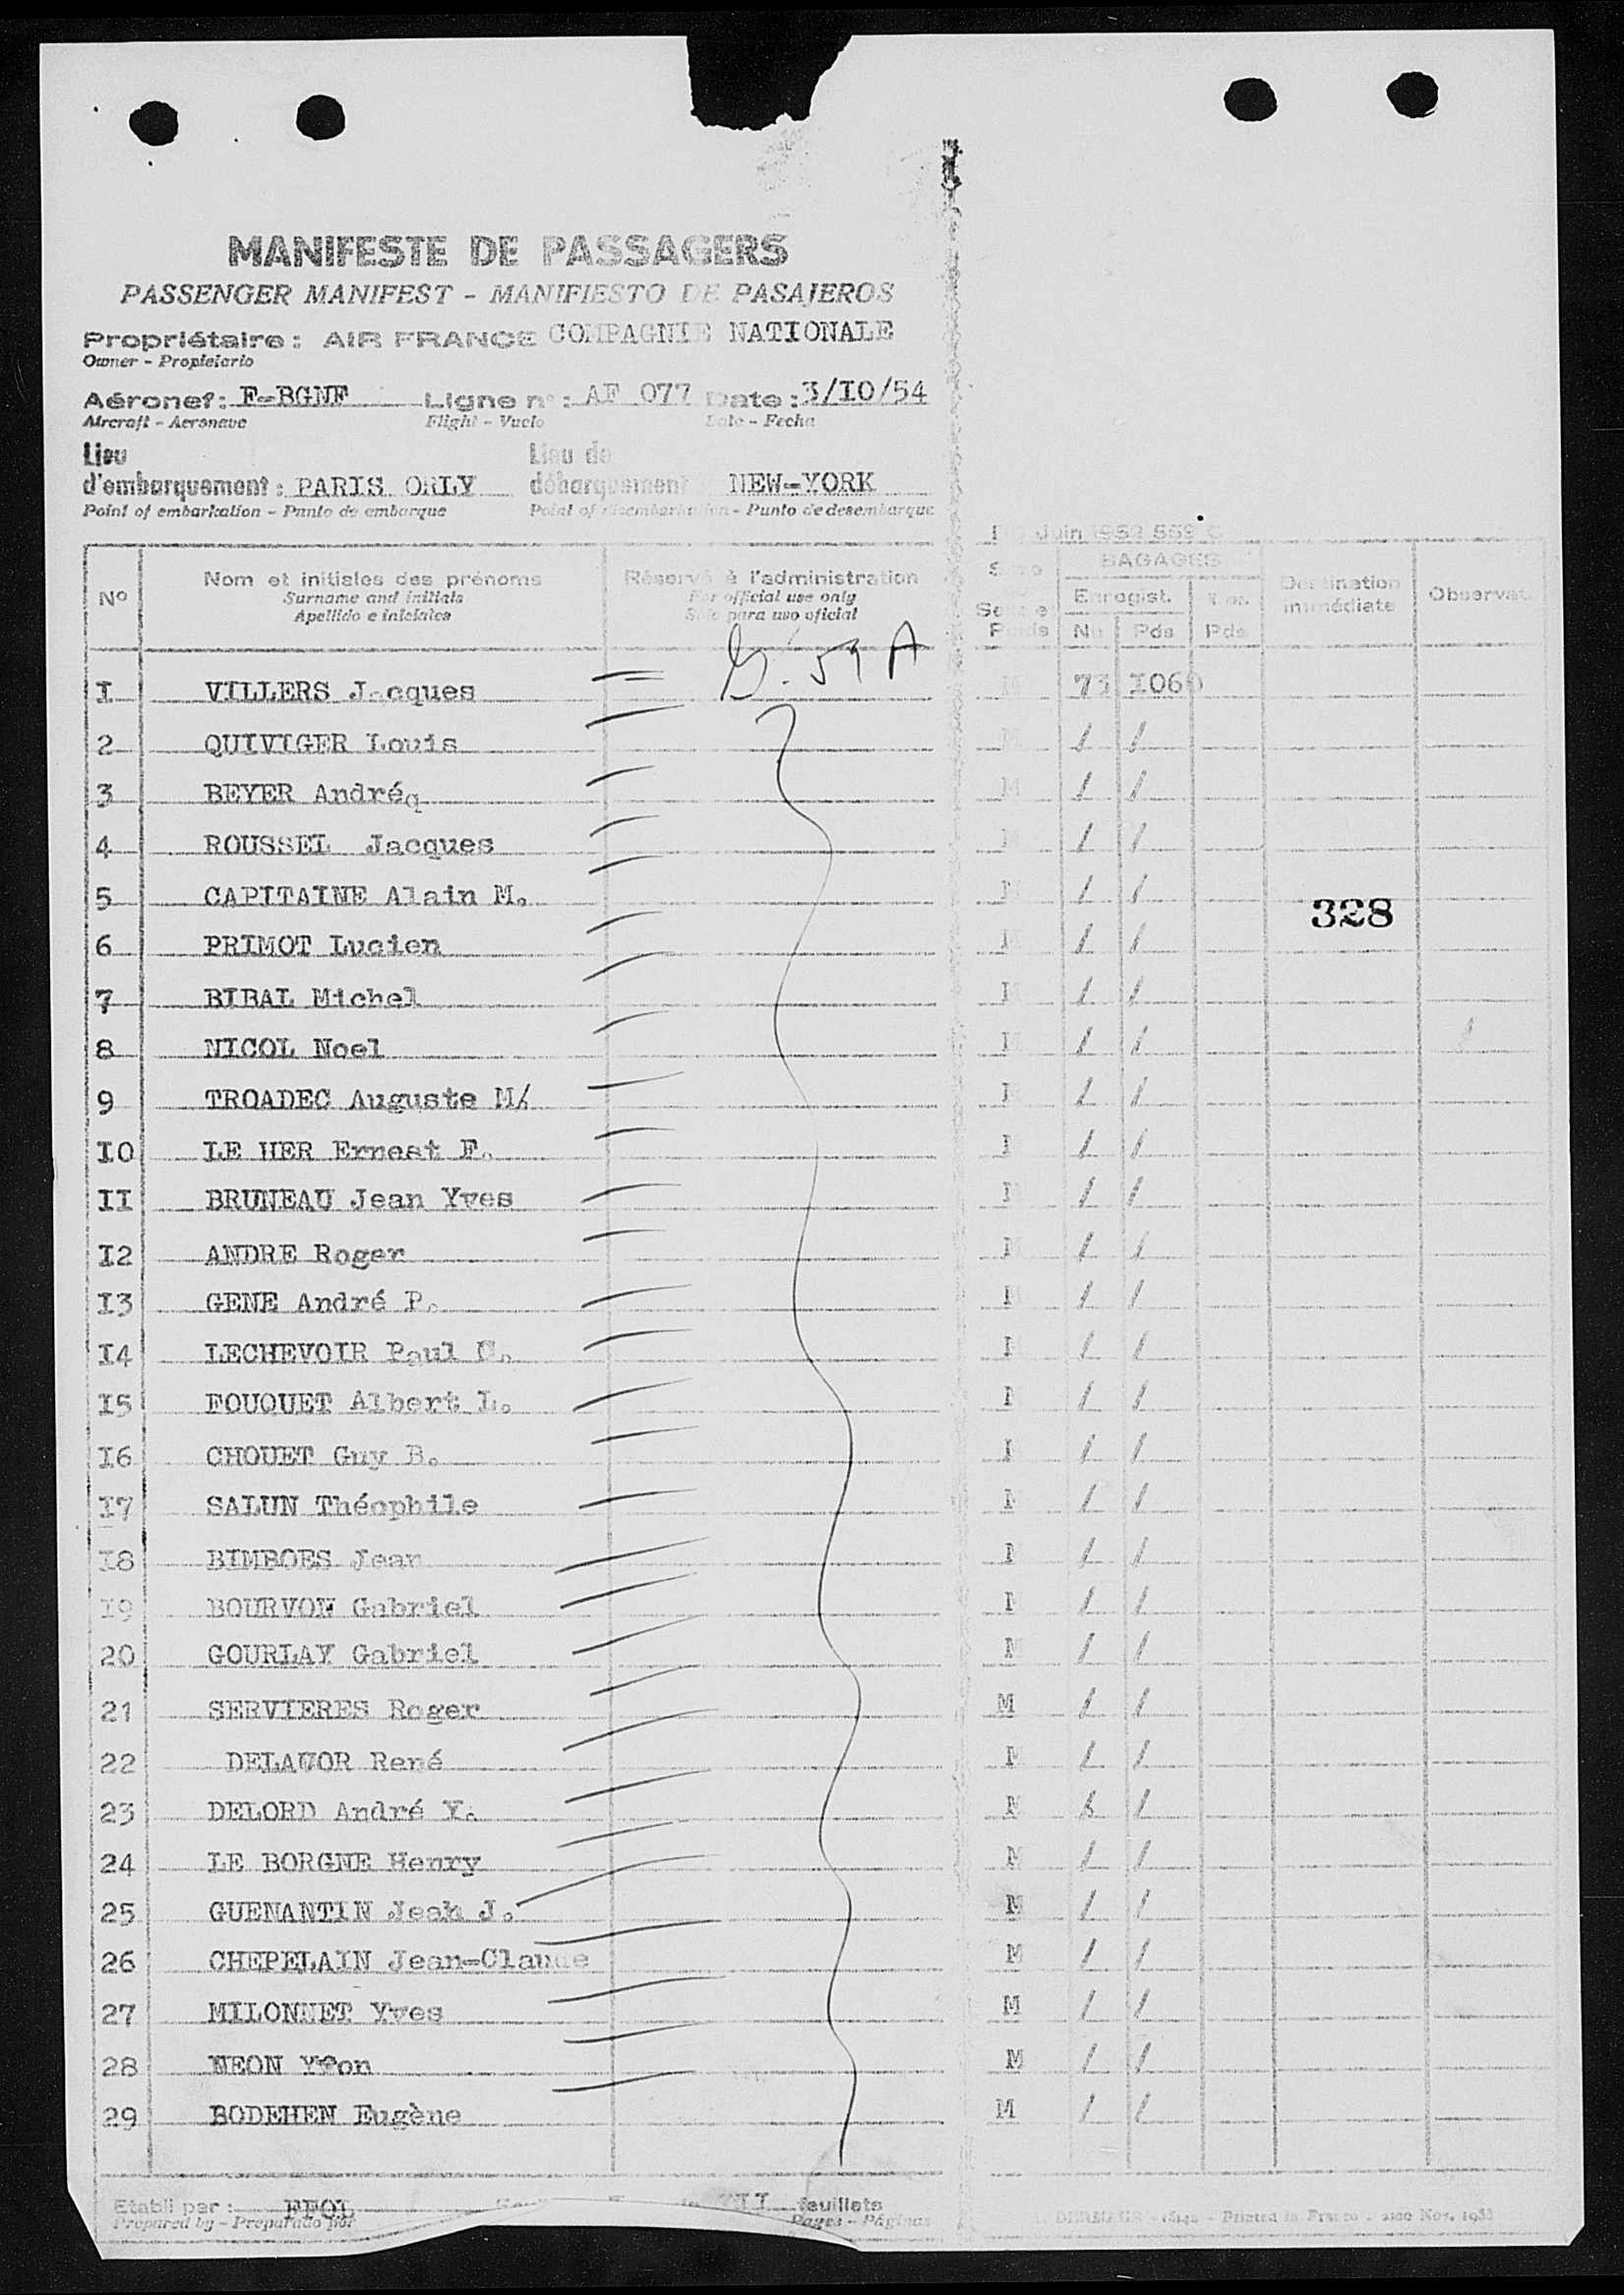 MANIFESTE DE PASSAGERS
PASSENGER MANIFEST - MANIFIESTO DE PASAJEROS
Propriétaire : AIR FRANCE COMPAGNIE NATIONALE
Owner - Propietario
Aéronef : F-BGNF Ligne n° : AF 077 Date : 3/I0/54
Aircraft - Aeronave Flight - Vuelo Date - Fecha
Lieu Lieu de
d'embarquement : PARIS ORLY débarquement NEW-YORK
Point of embarkation - Punto de embarque Point of disembarkation - Punto de desembarque
Juin 1952 559
Nº Nom et initiales des prénoms Réservé à l'administration BAGAGES Destination immédiate Observat.
Surname and initials For official use only Enregist.
Apellido e iniciales Sólo para uso oficial Poids No Pds Pds
59 A
I VILLERS Jacques M 73 I060
2 QUIVIGER Louis M
3 BEYER Andréq M
4 ROUSSEL Jacques M
5 CAPITAINE Alain M. M
328
6 PRIMOT Lucien M
7 BIBAL Michel M
8 NICOL Noel M
9 TROADEC Auguste M/ M
I0 LE HER Ernest F. M
II BRUNEAU Jean Yves M
I2 ANDRE Roger M
I3 GENE André P. M
I4 LECHEVOIR Paul M
I5 FOUQUET Albert L. M
I6 CHOUET Guy B. M
I7 SALUN Théophile M
I8 BIMBOES Jean M
I9 BOURVON Gabriel M
20 GOURLAY Gabriel M
21 SERVIERES Roger M
22 DELAUOR René M
23 DELORD André Y. M
24 LE BORGNE Henry M
25 GUENANTIN Jean J. M
26 CHEPELAIN Jean-Claude M
27 MILONNET Yves M
28 NEON Yvon M
29 BODEHEN Eugène M
Etabli par : feuillets
Prepared by - Preparado por Pages - Páginas
Printed in France Nov. 1953